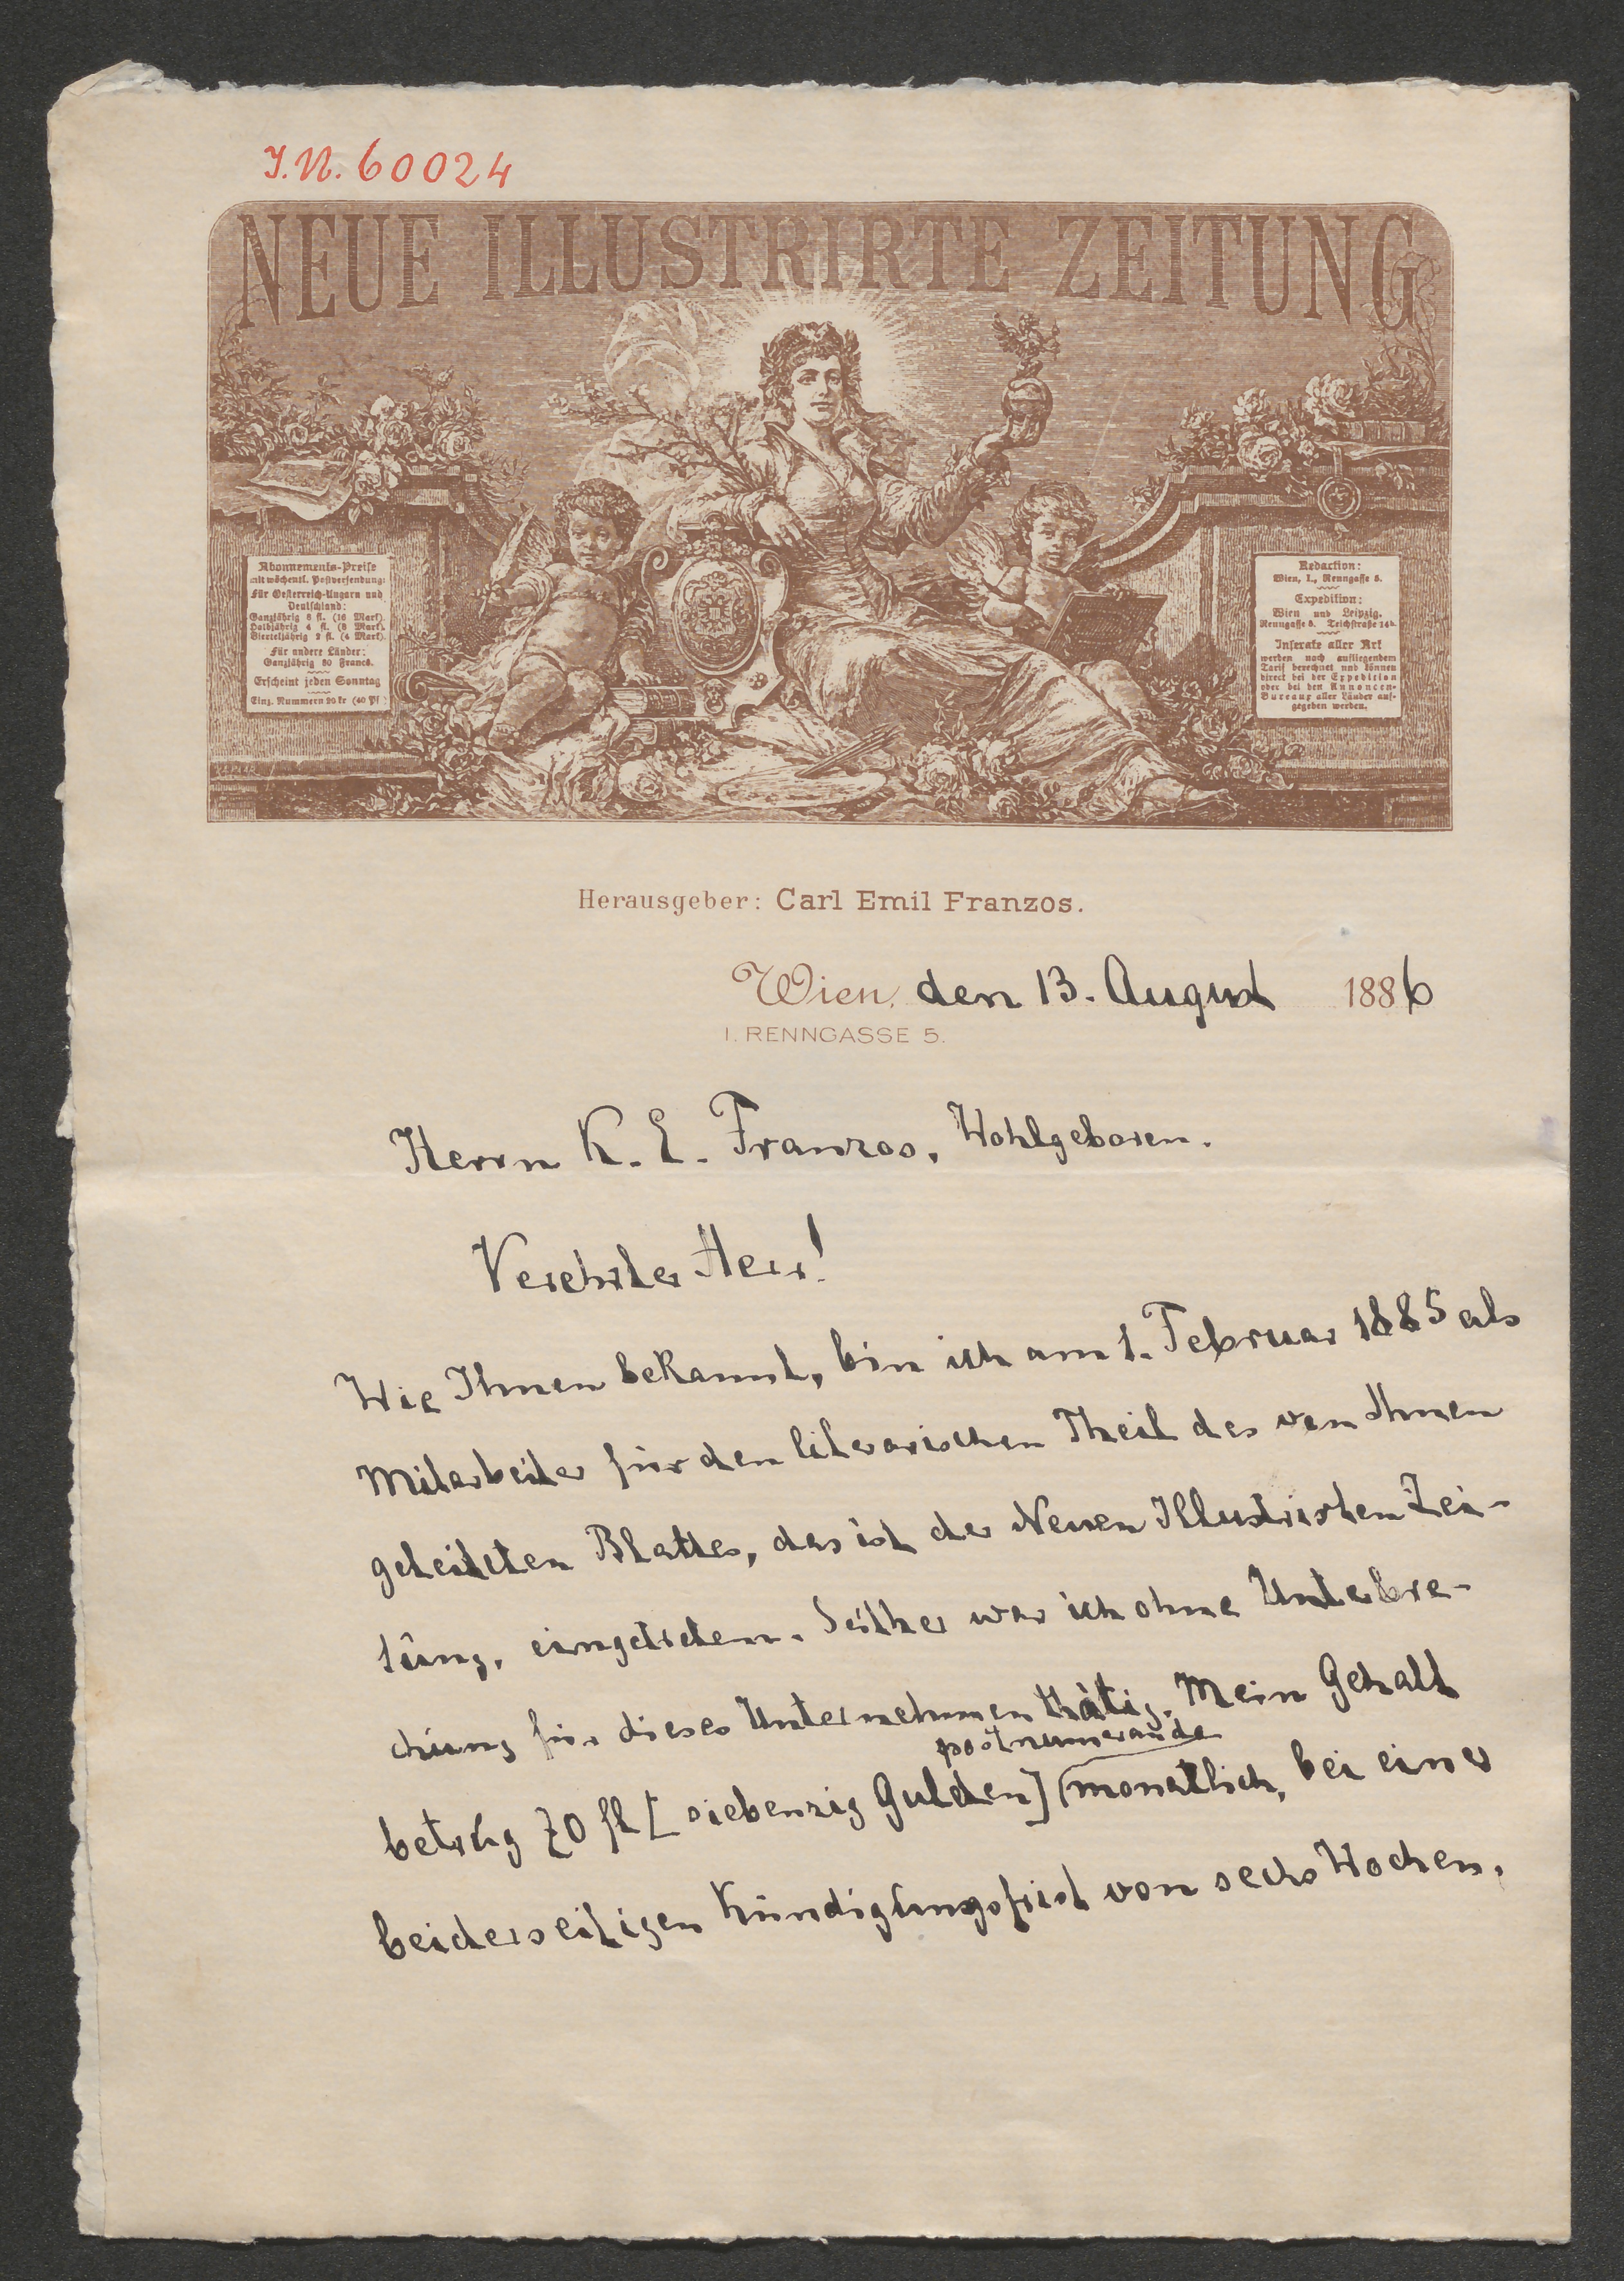 J.N. 60024
NEUE ILLUSTRIRTE ZEITUNG
Abonnements-Preise
mit wöchentl. Postversendung:
Für Oesterreich-Ungarn und
Deutschland:
Ganzjährig 8 fl. (16 Mark).
Halbjährig 4 fl. (8 Mark).
Vierteljährig 2 fl. (4 Mark).
Für andere Länder:
Ganzjährig 80 Francs.
Erscheint jeden Sonntag
Einz. Nummern 20 kr (40 Pf.)
Redaction:
Wien, I., Renngasse 5.
Expedition:
Wien und Leipzig.
Renngasse 5. Teichstraße
Inserate aller Art
werden nach aufliegendem
Tarif berechnet und können
direct bei der Expedition
oder bei den Annoncen-
Bureaux aller Länder auf-
gegeben werden.
Herausgeber: Carl Emil Franzos.
Wien, den 13. August 1886
I. RENNGASSE 5.
Herrn K. E. Franzos, Wohlgeboren.
Verehrter Herr!
Wie Ihnen bekannt, bin ich am 1. Februar 1885 als
Mitarbeiter für den literarischen Theil des von Ihnen
geleiteten Blattes, das ist der Neuen Illustrirten Zei-
tung, eingetreten. Seither war ich ohne Unterbre-
chung für dieses Unternehmen thätig. Mein Gehalt
postnumerando
betrug 70 fl [siebenzig Gulden] monatlich, bei einer
beiderseitigen Kündigungsfrist von sechs Wochen.